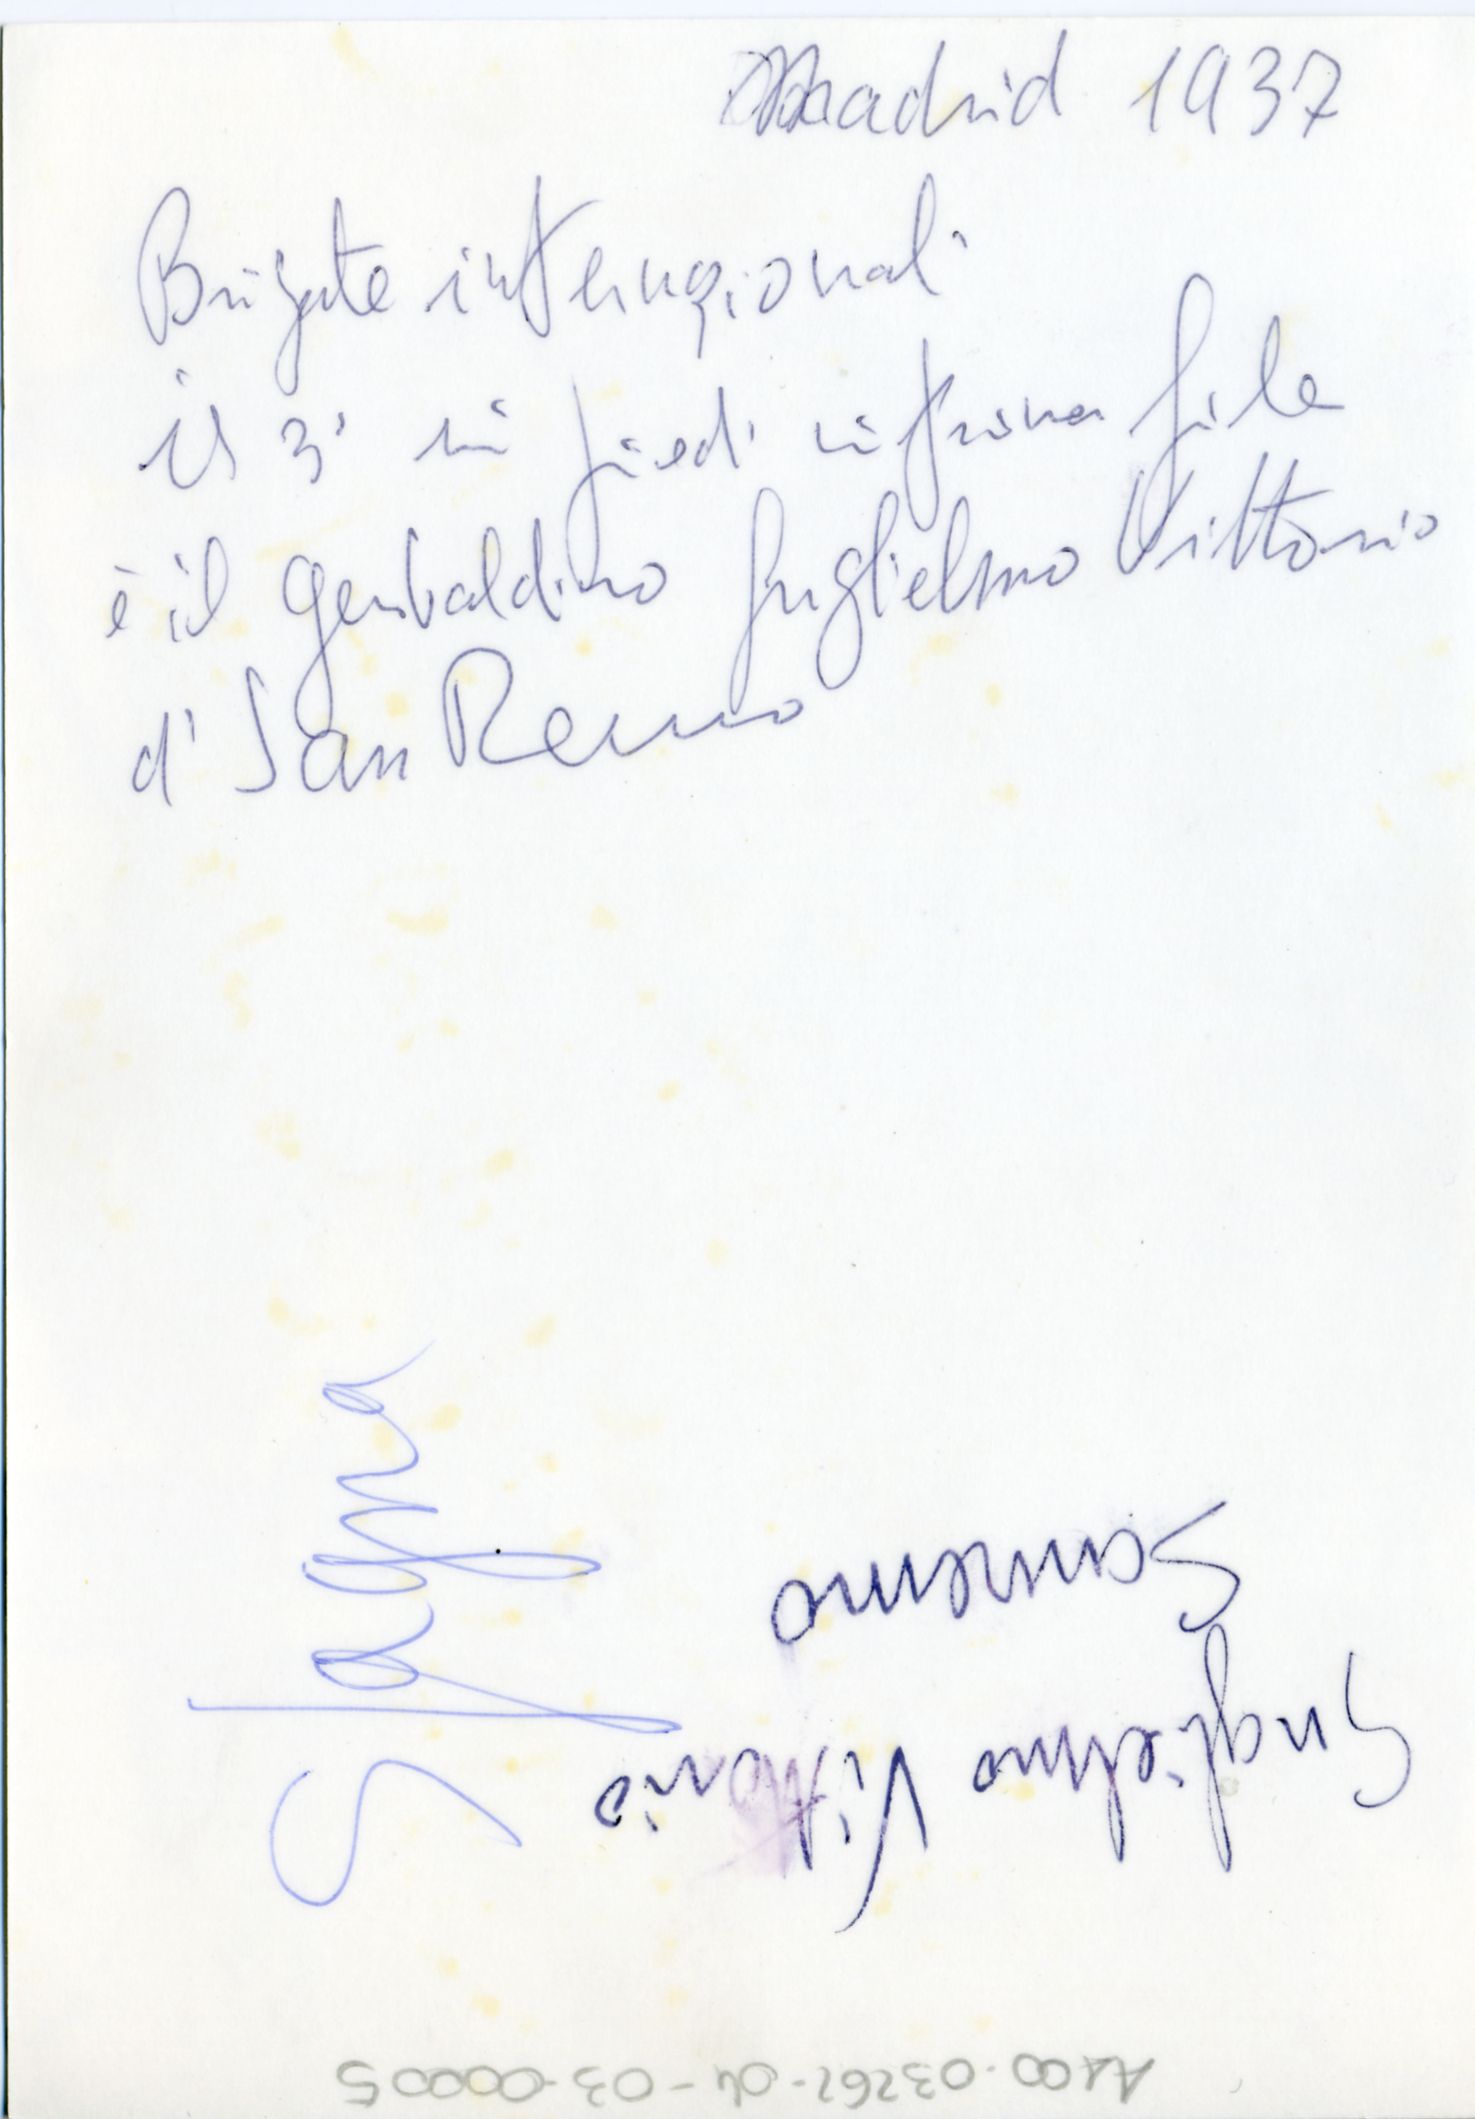 Madrid 1937
Brigate internazionali
il 3° in piedi in prima fila
è il garibaldino Guglielmo Vittorio
d' San Remo
Spagna
Guglielmo Vittorio
Sanremo
A100-03262-04-03-00005